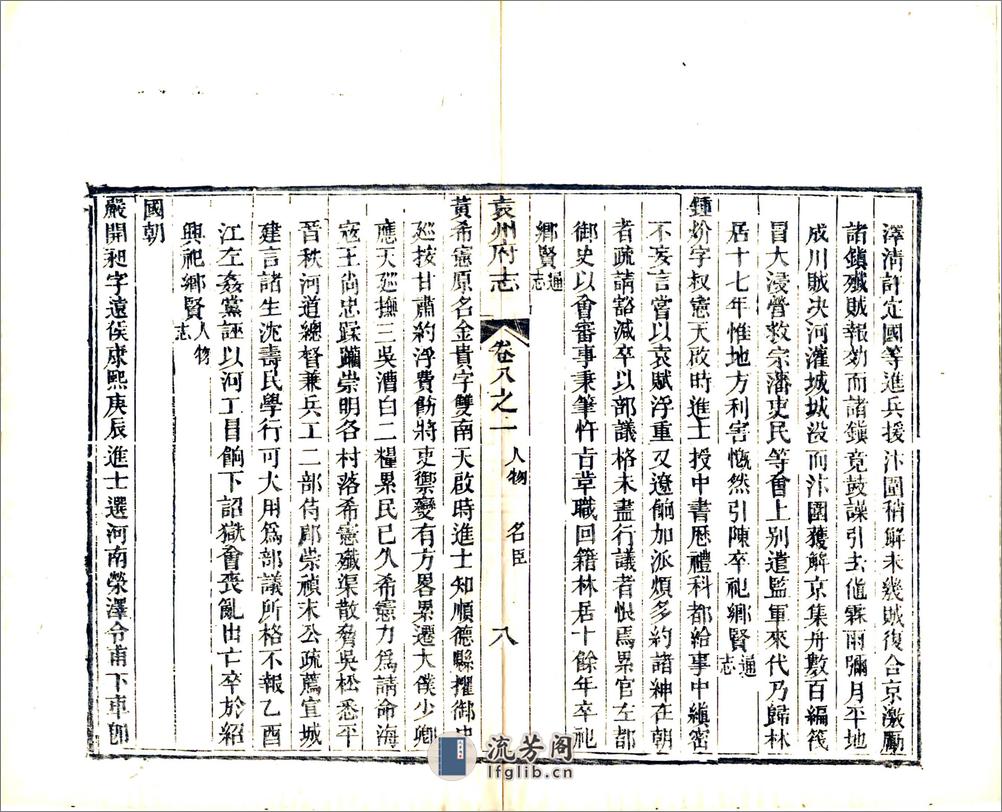 澤清許定國等進兵援汴圍稍解未幾賊復合京激勵
諸鎮殲賊報効而諸鎮竟鼓譟引去値霖雨彌月平地
成川賊决河灌城城没而汴圍獲解京集舟數百編筏
冒大浸營救宗藩吏民等會上别遣監軍來代乃歸林
居十七年惟地方利害慨然引陳卒祀鄉賢通志
鍾炌字叔憲天啟時進士授中書歴禮科都給事中縝密
不妄言當以袁賦浮重又遼餉加派煩多約諸紳在朝
者疏請豁減卒以部議格未盡行議者恨焉累官左都
御史以會審事秉筆忤㫖革職回籍林居十餘年卒祀
鄉賢通志
袁州府志 卷八之一 人物 名臣 八
黃希憲原名金貴字雙南天啟時進士知順德縣擢御史
廵按甘肅約浮費飭將吏禦變有方畧累遷大僕少卿
應天廵撫三吳漕白二糧累民已久希憲力爲請命海
寇王尚忠蹂躪崇明各村落希憲殲渠散脅吳松悉平
晉秩河道總督兼兵工二部侍郎崇禎末公疏薦宣城
建言諸生沈壽民學行可大用爲部議所格不報乙酉
江左姦黨誣以河工冒餉下詔獄會喪亂出亡卒於紹
興祀鄉賢人物志
國朝
嚴開昶字遠侯康熙庚辰進士選河南榮澤令甫下車卽
流芳阁
lfglib.cn